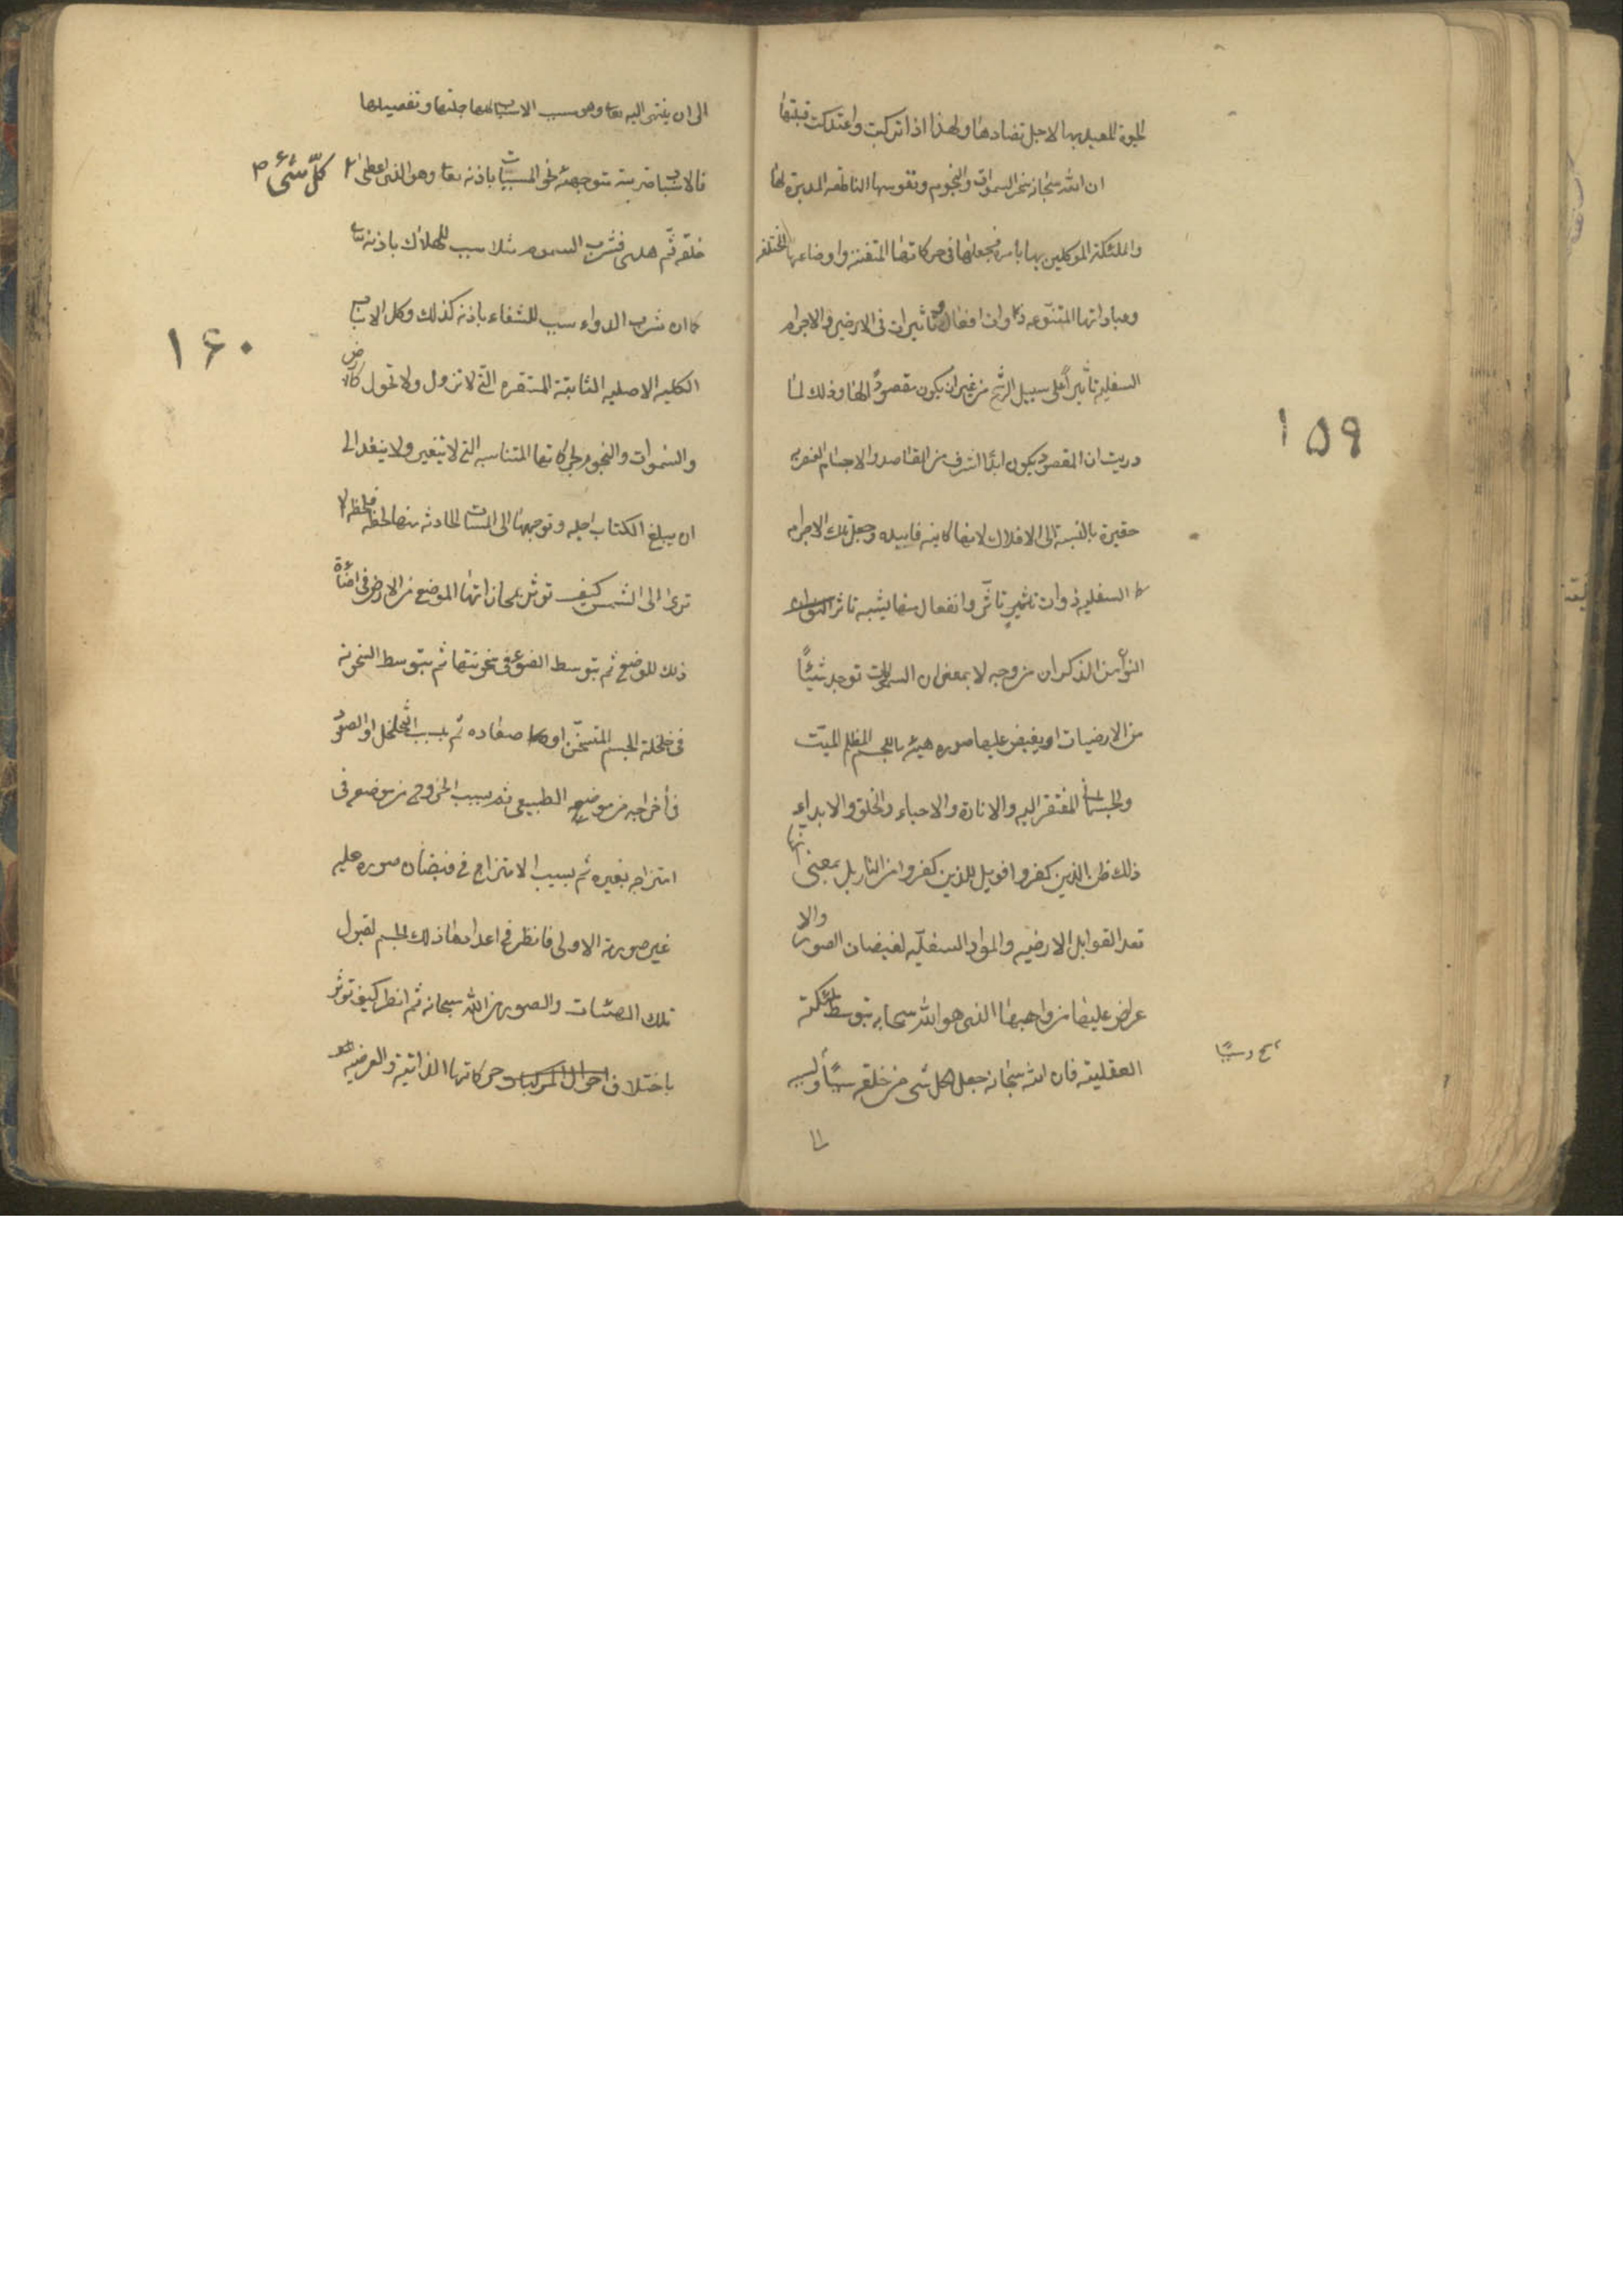 الحيوة للعبد بها لاجل تضادها ولهذا اذا تركبت واعتدلت قبلتها
ان الله سبحانه سخر السموات والنجوم ونفوسها الناطقه المدبرة لها
والملئكة الموكلين بها بأمره فجعلها فى حركاتها المتفننه واوضاعها المختلفه
وعباداتها المتنوعه ذوات افعال وتأثيرات فى الارضين والاجرام
السفليه تأثيراً على سبيل الرشح من غير ان يكون مقصودً الها وذلك لما
دريت ان المقصود يكون ابداً اشرف من القاصد والاجسام العنصريه
حقيرة بالنسبة الى الافلاك لانها كاينه فاسده وجعل تلك الاجرام
السفليه ذوات تأثر وانفعال منها يشبه تاثر
النوآمن الذكران من وجه لا بمعنى ان السموات توجد شيئًا
من الارضيات او يفيض عليها صوره هيئه بالجسم المظلم الميّت
والجسمانى المفتقر اليه والانارة والاحياء والخلق والابداء
ذلك ظن الذين كفروا فويل للذين كفروا من النار بل بمعنى انها
تعد القوابل الارضيه والمواد السفليّه لفيضان الصور والا
عراض عليها من واهبها الذى هو الله سبحانه بتوسط ملئكته
العقليته فان الله سبحانه جعل لكل شى من خلقه سببًا ولسببه
سببًا
١٥٩
الى
الى ان ينتهى اليه تعا وهو سبب الاسباب كلها جملتها وتفصيلها
فالاسباب مترتبه متوجهئة نحو المسببات باذنه تعا وهو الذى اعطى كلّ شىء
خلقه ثم هدى فشرب السموم مثلا سبب للهلاك باذنه تعا
كما ان شرب الدواء سبب للشفاء باذنه كذلك وكل الاسباب
الكليه الاصليه الثابتة المستقره التى لا تزول ولا تحول كالارض
والسموات والنجوم لحركاتها المتناسبه التى لا يتغير ولا ينفد الى
ان يبلغ الكتاب اجله وتوجهها الى المسببات الحادثه منها لحظة فلحظه الا
ترى الى الشمس كيف توثر بمحاذاتها الموضع من الارض فى اضائة
ذلك الموضع ثم بتوسط الضوء فى سخونتها ثم بتوسط السخونه
فى خلخلة الجسم المتسخن او صعاده ثم بسبب التخلخل او الصعود
فى أخراجه من موضعه الطبيعى ثم بسبب الخروج من موضعه فى
امتزاجه بغيره ثم بسبب الامتزاج فى فيضان صوره عليه
غير صورته الاولى فانظر فى اعدادها ذلك الجسم لقبول
تلك الهئيات والصور من الله سبحانه ثم انظر كيف توثر
باختلاف احوال المركبات حركاتها الذاتية والعرضيه
١٦٠